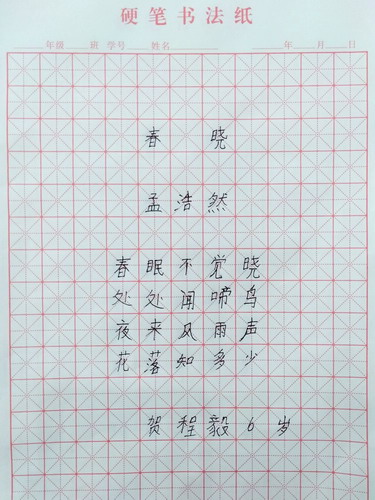 硬笔书法纸
年级 班 学号 姓名 年 月 日
春 晓
孟浩然
春眠不觉晓
处处闻啼鸟
夜来风雨声
花落知多少
贺程毅6岁